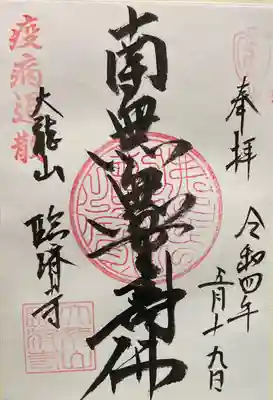 奉拝
令和四年
五月十九日
南無無量壽佛
疫病退散
大龍山
臨濟寺